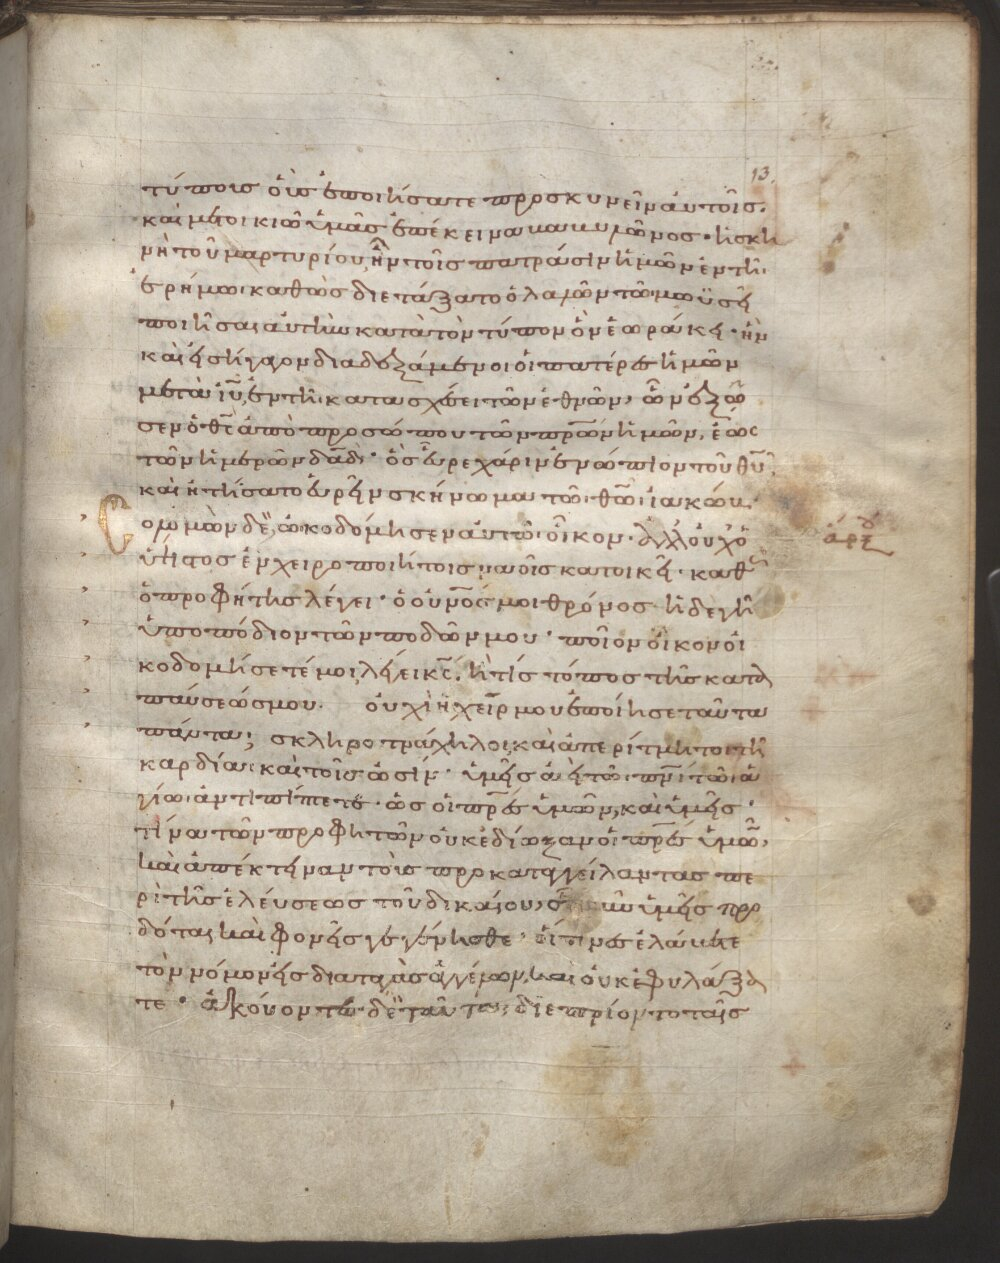 13.
τύποις οὓς ἐποιήσατε προσκυνεῖν αὐτοῖς.
καὶ μετοικιῶ ὑμᾶς ἐπέκεινα βαβυλῶνος · ἡ σκη
νὴ τοῦ μαρτυρίου, ἦν τοῖς πατράσιν ἡμῶν ἐν τῆ
ἐρήμω · καθὼς διετάξατο ὁ λαλῶν τῶ μωϋσῆ
ποιῆσαι αὐτὴν κατὰ τὸν τύπον ὃν ἑωράκει · ἣν
καὶ εἰσήγαγον διαδεξάμενοι οἱ πατέρες ἡμῶν
μετὰ ἰῦ, ἐν τῆ κατασχέσει τῶν ἐθνῶν, ὧν ἐξῶ
σεν ὁ θς ἀπὸ προσώπου τῶν πρων ἡμῶν, ἕως
τῶν ἡμερῶν δαδ · ὃς εὗρε χάριν ἐνώπιον τοῦ θυ,
καὶ ἠτήσατο εὑρεῖν σκήνωμα τῶ θω ἰακώβ.
Σολομὼν δὲ, ὠκοδόμησεν αὐτῶ οἶκον · ἀλλ οὐχ ὁ
ὕψιστος ἐν χειροποιήτοις ναοῖς κατοικεῖ · καθὼς
ὁ προφήτης λέγει · ὁ οὐνος μοι θρόνος ἡ δὲ γῆ
ὑποπόδιον τῶν ποδῶν μου · ποῖον οἶκον οἰ
κοδομήσετέ μοι, λέγει κς. ἢ τίς τόπος τῆς κατα
παύσεώς μου. οὐχὶ ἡ χείρ μου ἐποίησε ταῦτα
πάντα; σκληροτράχηλοι, καὶ ἀπερίτμητοι τῆ
καρδία καὶ τοῖς ὠσίν · ὑμεῖς ἀεὶ τῶ πνι τῶ ἁ
γίω ἀντιπίπετε · ὡς οἱ πρες ὑμῶν, καὶ ὑμεῖς ·
τίνα τῶν προφητῶν οὐκ ἐδίωξαν οἱ πρες ὑμῶν,
καὶ ἀπέκτειναν τοὺς προκαταγγείλαντας πε
ρὶ τῆς ἐλεύσεως τοῦ δικαίου, οὗ νῦν ὑμεῖς προ
δόται καὶ φονεῖς γεγένησθε · οἵτινες ἐλάβετε
τὸν νόμον εἰς διαταγὰς ἀγγέλων, καὶ οὐκ ἐφυλάξα
τε · ἀκούοντες δὲ ταῦτα, διεπρίοντο ταῖς